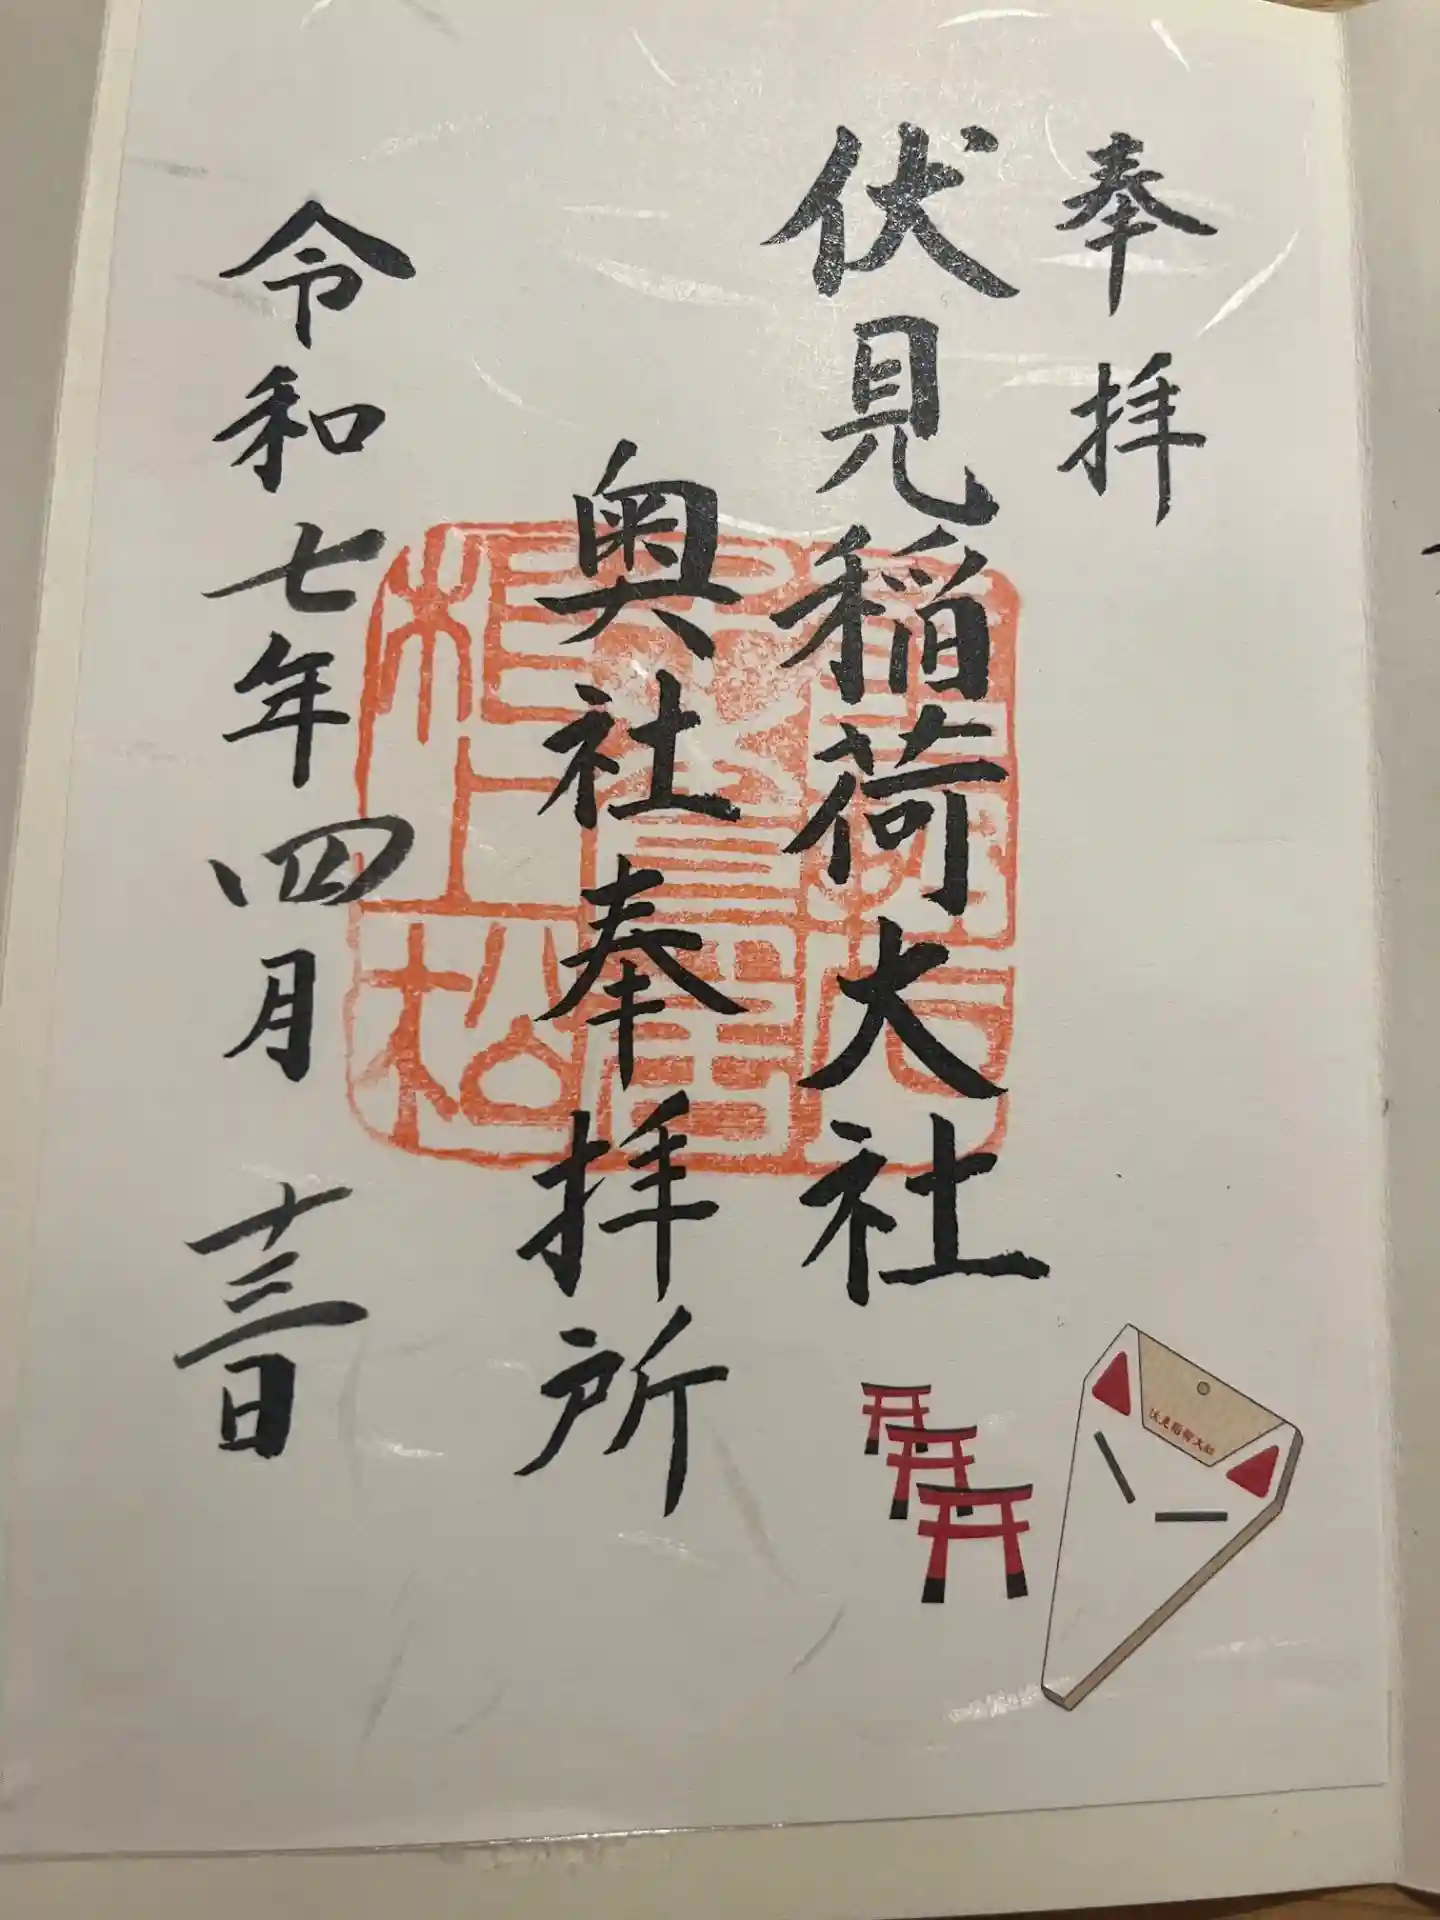 奉拝
伏見稲荷大社
奥社奉拝所
令和七年四月十三日
伏見稲荷大社